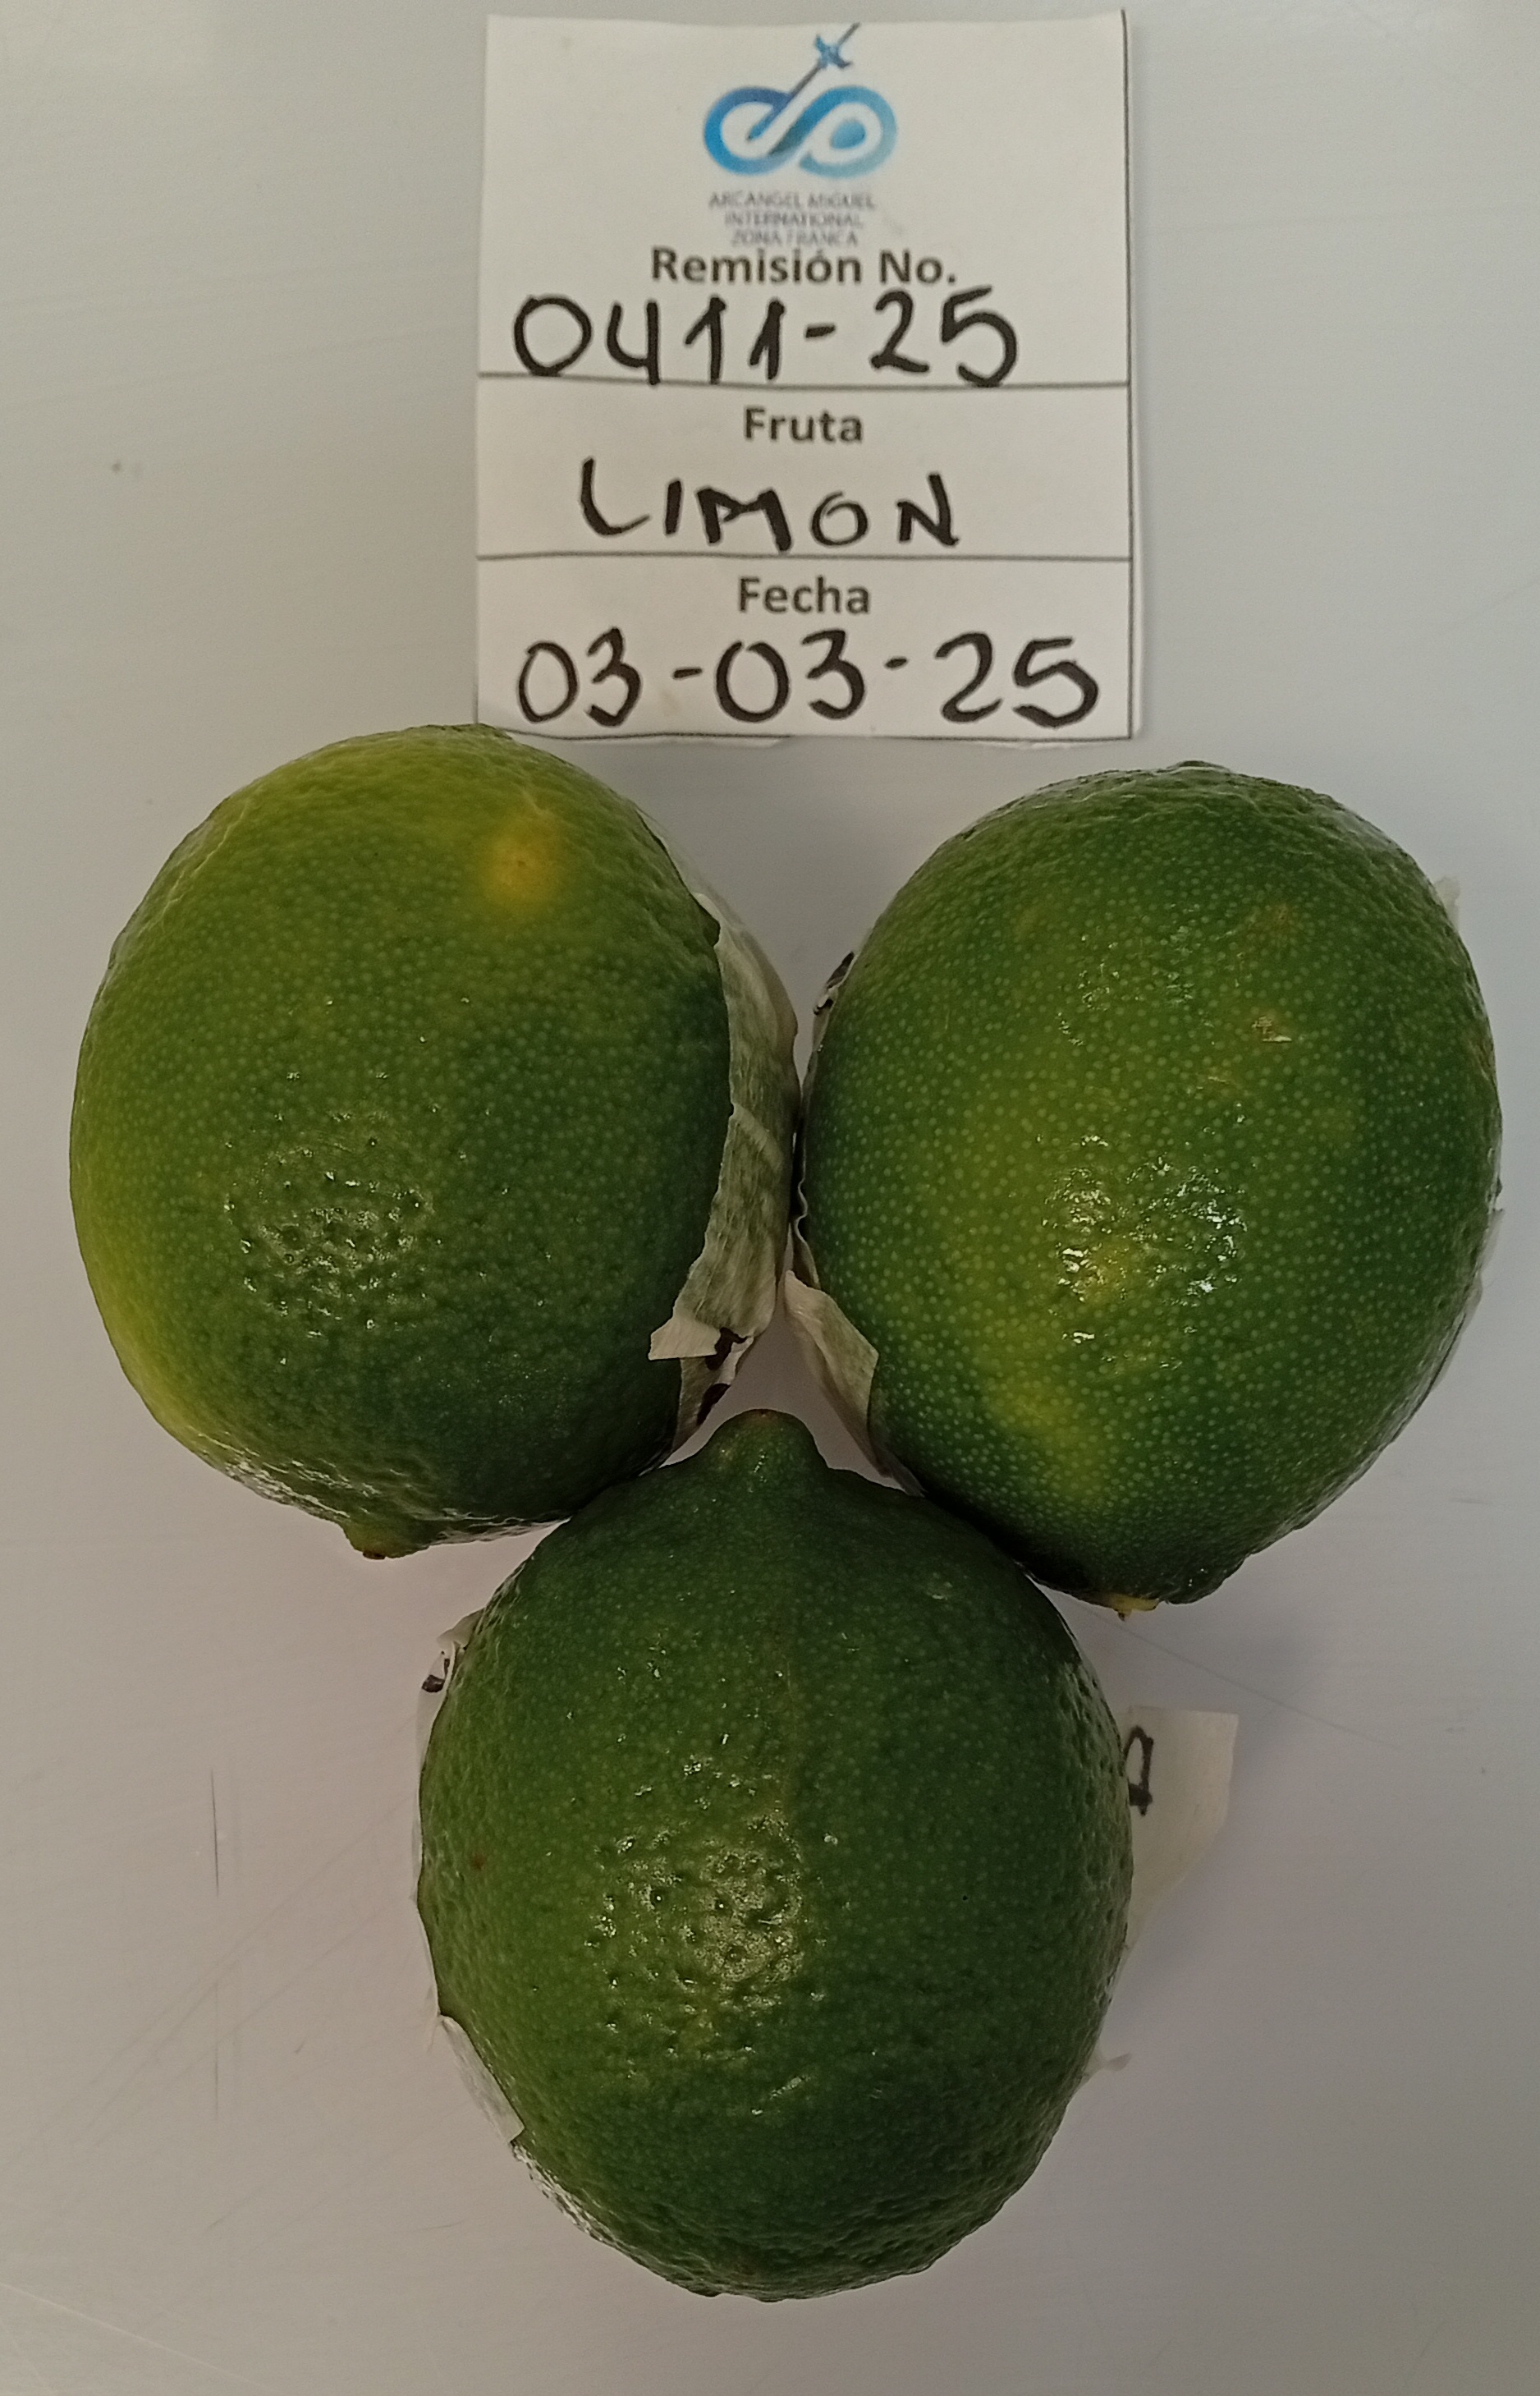 ARCANGEL MIGUEL
INTERNATIONAL
ZONA FRANCA
Remisión No.
0411-25
Fruta
LIMON
Fecha
03-03-25